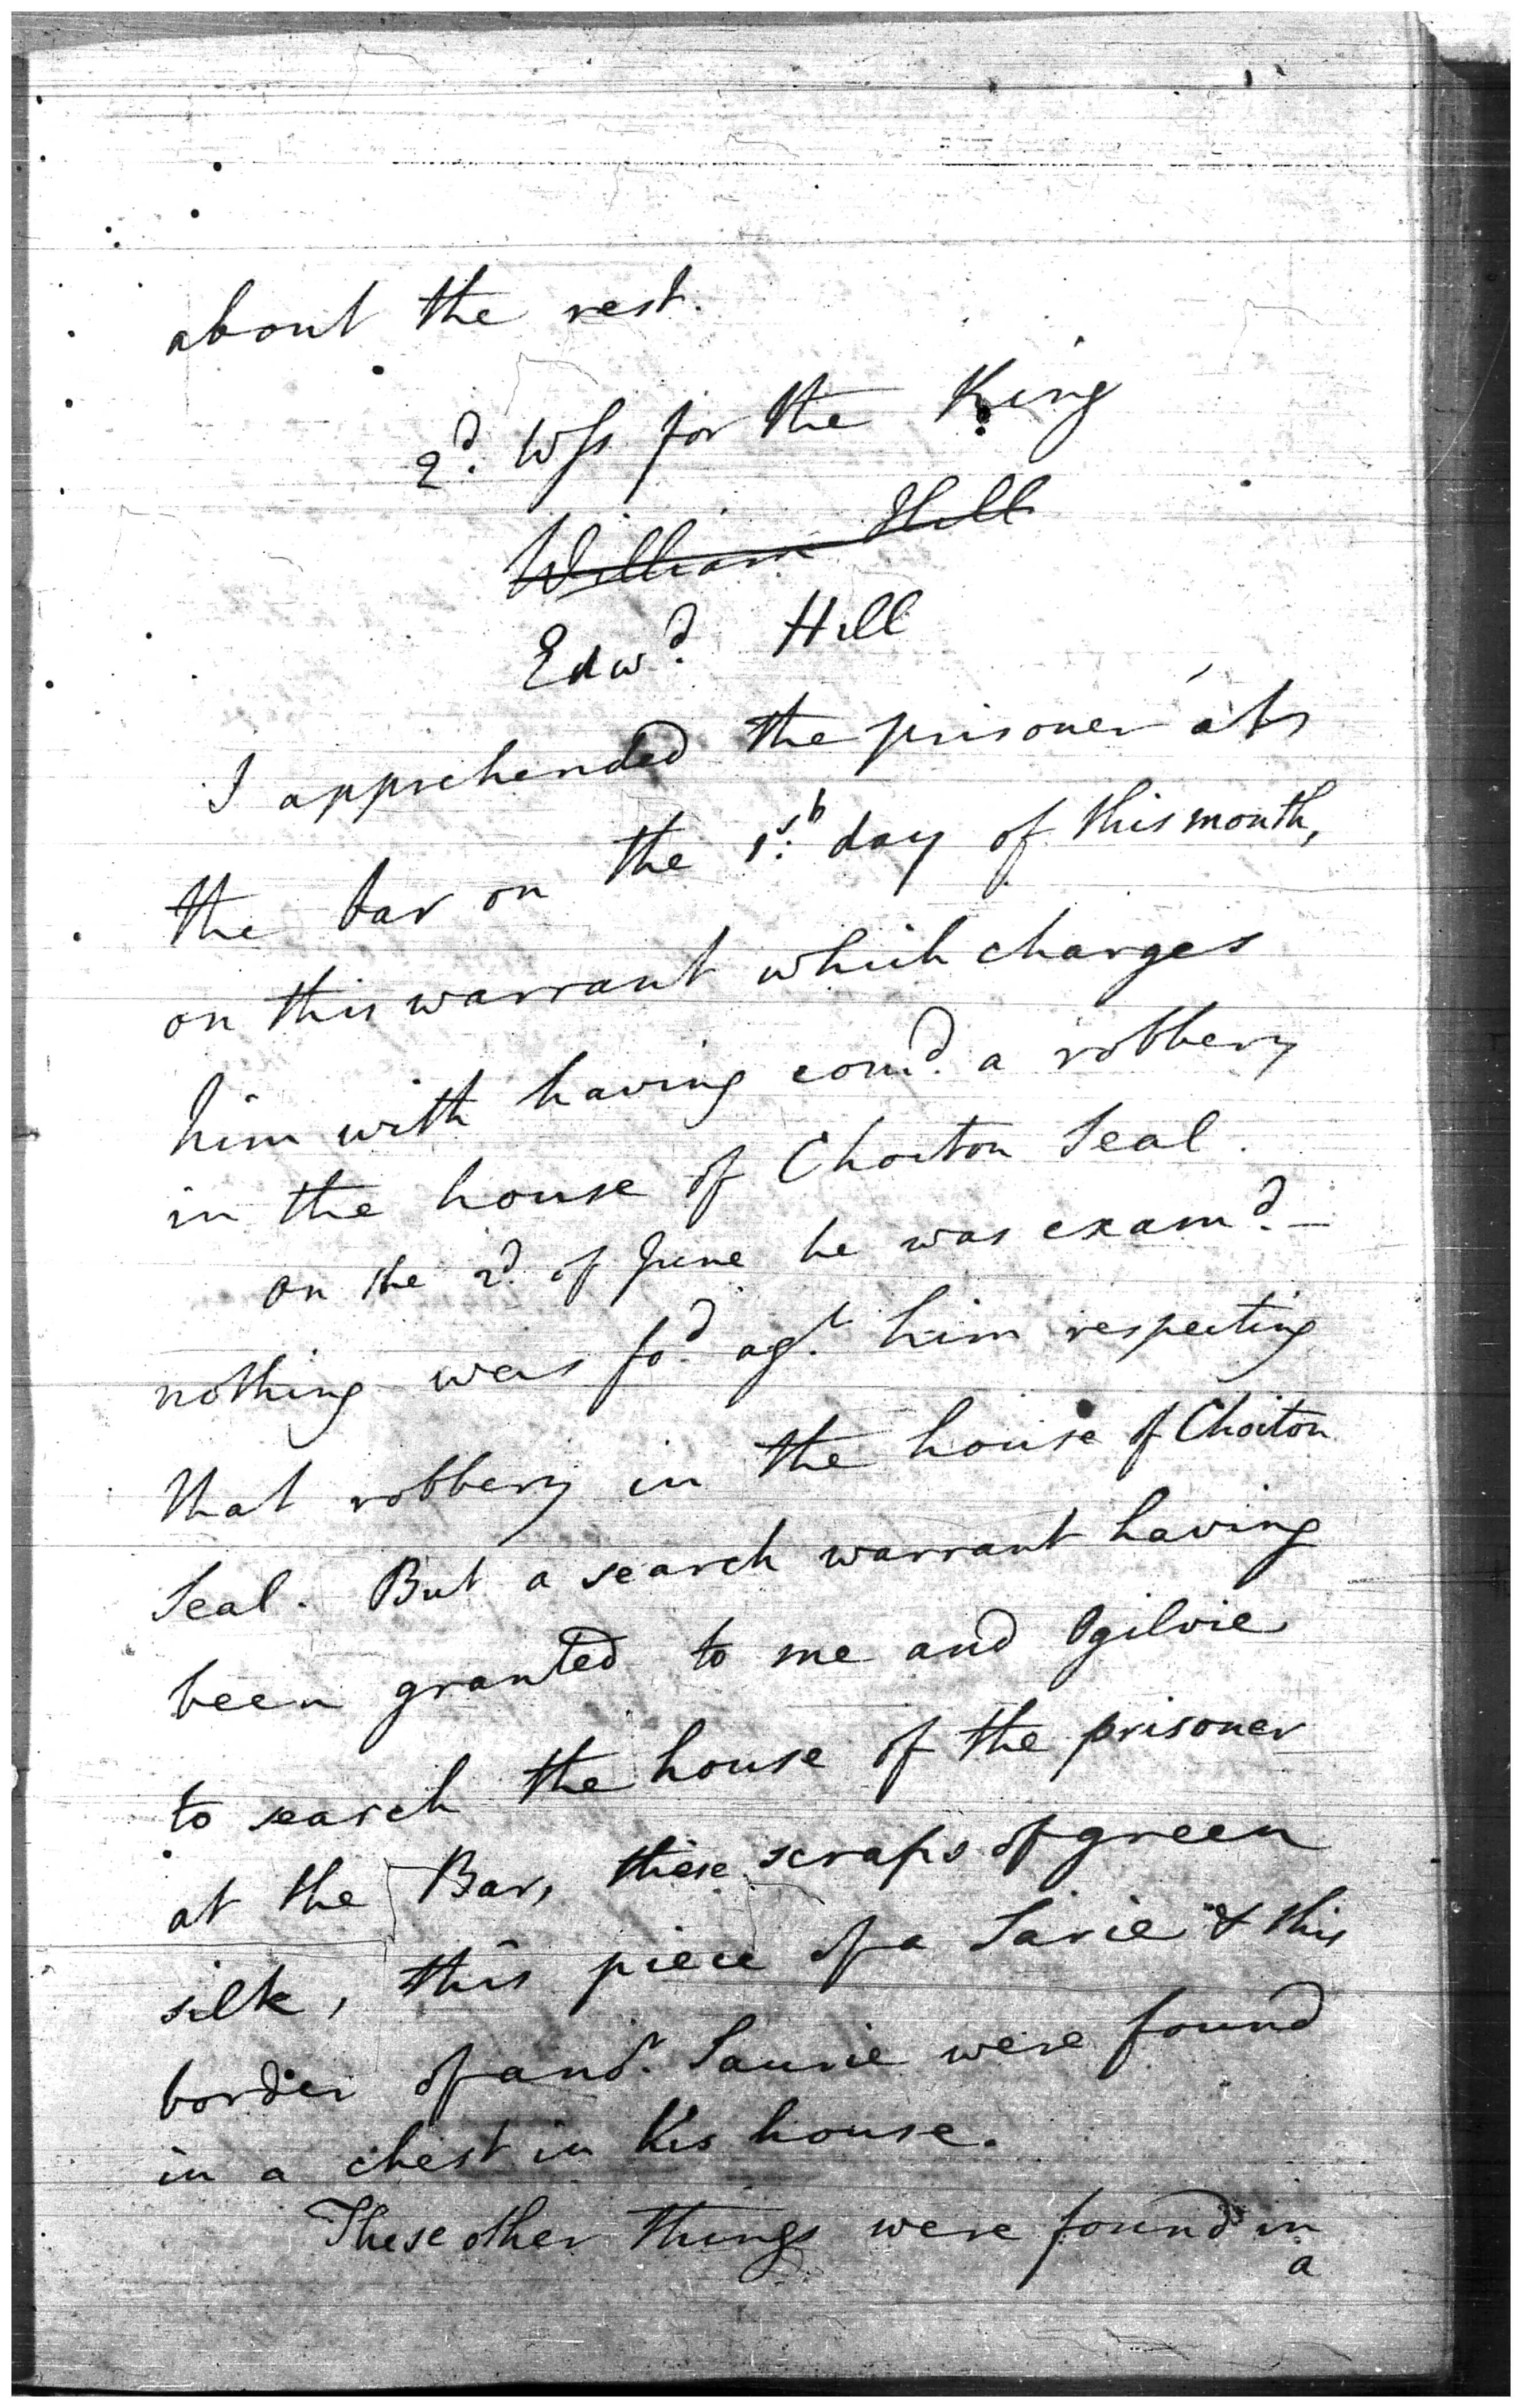 about the rest.
2d. Wss for the King
William Hill
Edwd. Hill
I apprehended the prisoner at
the bar on the 1st. day of this month,
on this warrant which charges
him with having comd. a robbery
in the house of Choiton Seal.
on the 2d. of June he was examd. —
nothing was fod. agt. him respecting
that robbery in the house of Choiton
Seal. But a search warrant having
been granted to me and Ogilvie
to search the house of the prisoner
at the Bar, these scraps of green
silk, this piece of a Sarie & this
border of anor. Saurie were found
in a chest in his house.
These other things were found in
a